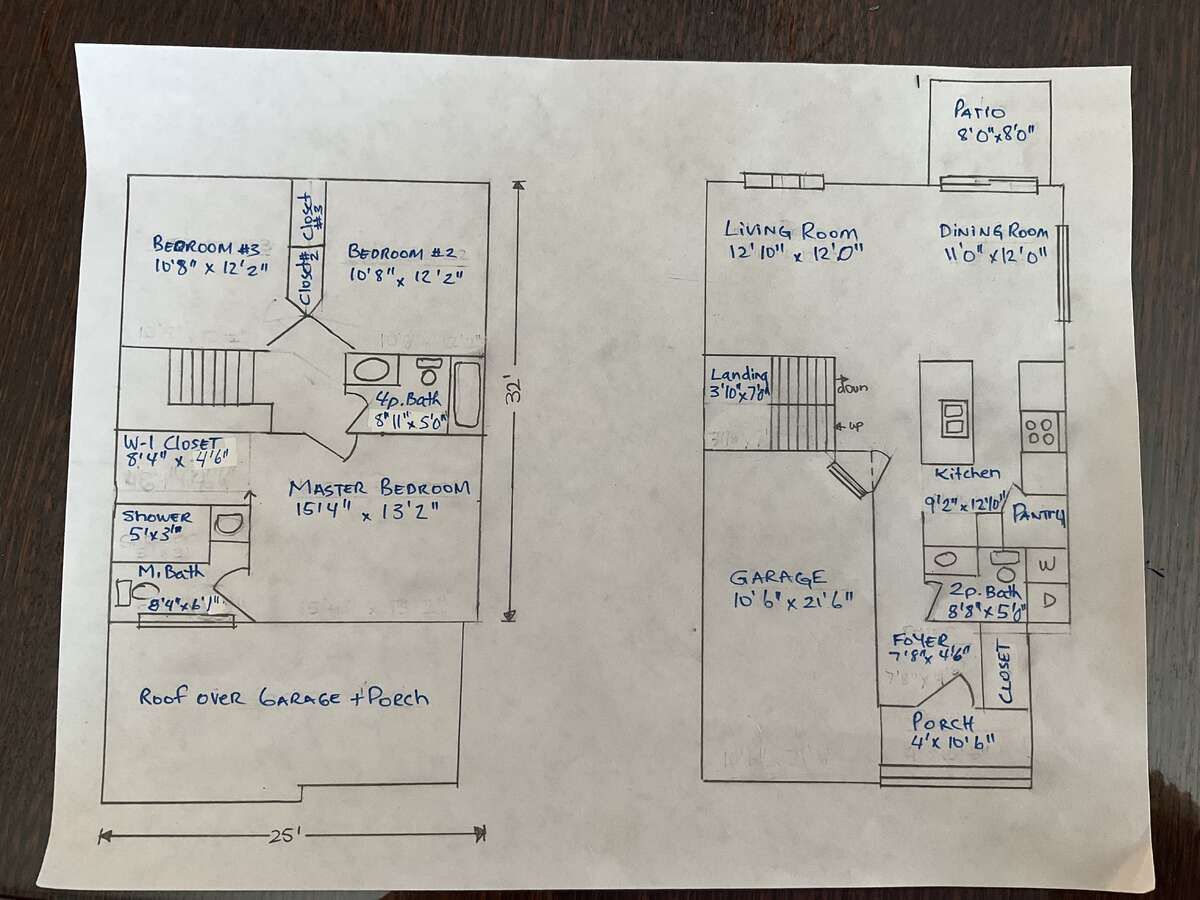 BEDROOM #3
10'8" x 12'2"
Closet #3
Closet #2
BEDROOM #2
10'8" x 12'2"
32'
4p. Bath
8'11" x 5'0"
W-I CLOSET
8'4" x 4'6"
MASTER BEDROOM
15'4" x 13'2"
SHOWER
5'x3'
M. Bath
8'4" x 6'1"
ROOF OVER GARAGE + PORCH
25'
PATIO
8'0" x 8'0"
LIVING ROOM
12'10" x 12'0"
DINING ROOM
11'0" x 12'0"
Landing
3'10" x 7'0"
down
up
Kitchen
9'2" x 12'0"
PANTRY
GARAGE
10'6" x 21'6"
2p. Bath
8'8" x 5'0"
W
D
FOYER
7'8" x 4'6"
CLOSET
PORCH
4' x 10'6"